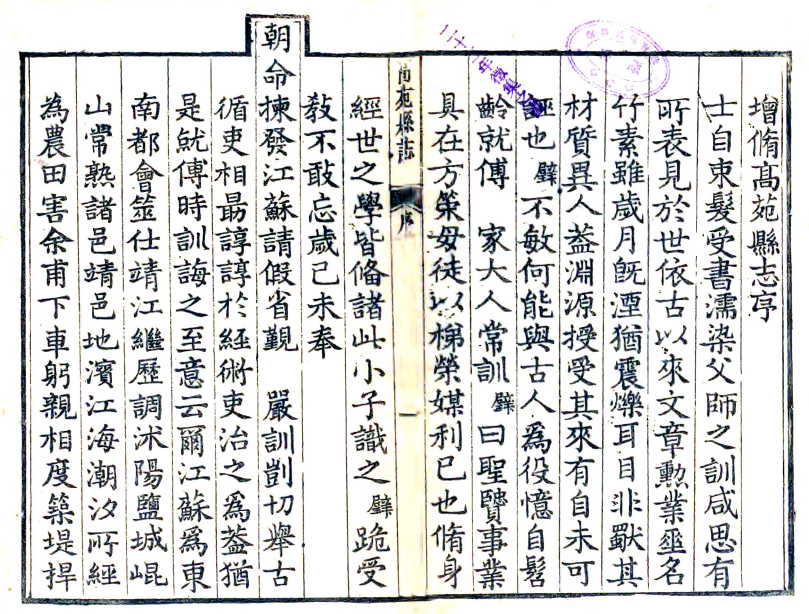 增脩高苑縣志序
士自束髮受書濡染父師之訓咸思有
所表見於世依古以來文章勲業垂名
竹素雖歲月旣湮猶震爍耳目非獸其
材質異人葢淵源授受其來有自未可
誣也 驊不敏何能與古人爲役憶自髫
齡就傅 家大人常訓 驊曰聖贒事業
具在方策毋徒以梯榮媒利已也脩身
高苑縣志
序
一
經世之學皆偹諸此小子識之 驊跪受
敎不敢忘歲己未奉
朝命揀發江蘇請假省覲 嚴訓剴切舉古
循吏相朂諄諄於經術吏治之爲葢猶
是就傅時訓誨之至意云爾江蘇爲東
南都會筮仕靖江繼歷調沭陽鹽城崐
山常熟諸邑靖邑地濱江海潮汐所經
為農田害余甫下車躬親相度築堤捍